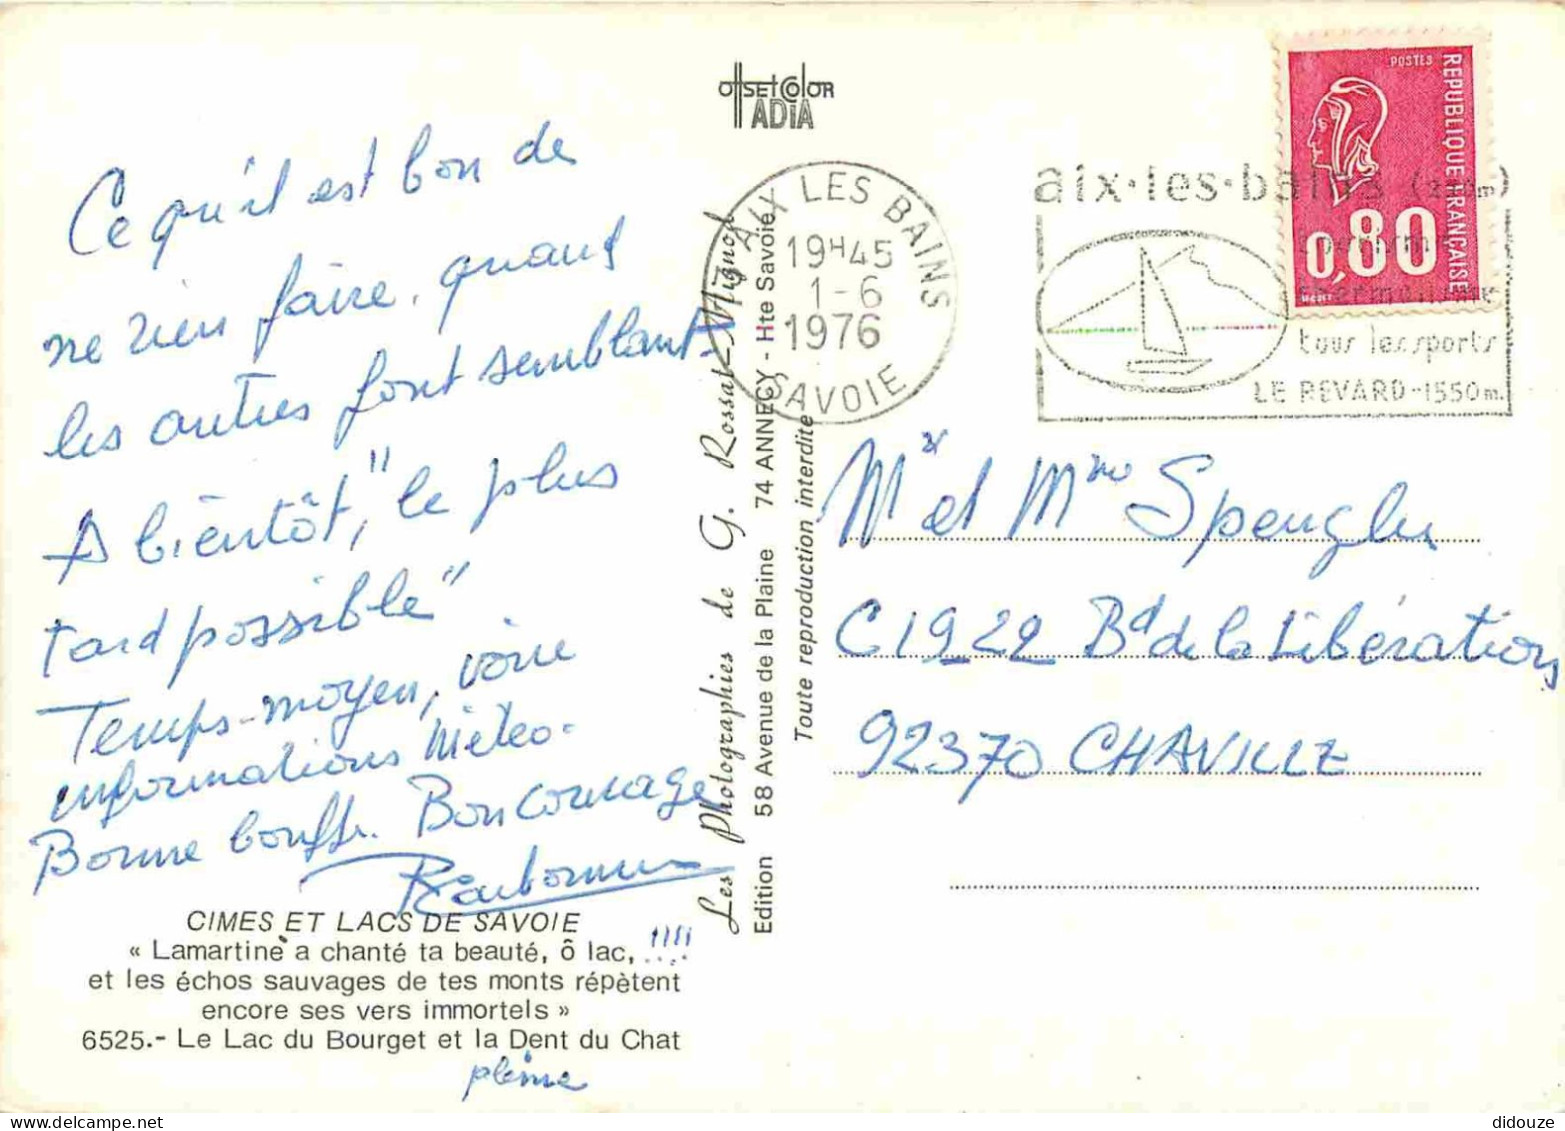 Ce qu'il est bon de
ne rien faire, quand
les autres font semblant.
A bientôt, "le plus
tard possible"
Temps-moyen, voire
informations Météo.
Bonne bouffe. Bon courage
CIMES ET LACS DE SAVOIE
« Lamartine a chanté ta beauté, ô lac, !!!!
et les échos sauvages de tes monts répètent
encore ses vers immortels »
6525.- Le Lac du Bourget et la Dent du Chat
pleine
OffSEt COlOR
IADIA
Les Photographies de G. Rossat-Mignod
Edition 58 Avenue de la Plaine 74 ANNECY - Hte Savoie
Toute reproduction interdite
AIX LES BAINS
19H45
1-6
1976
SAVOIE
aix·les·bains
tous les sports
LE REVARD-1550m.
POSTES
REPUBLIQUE FRANÇAISE
0,80
Mr et Mme Spengler
C1 922 Bd de la Libération
92370 CHAVILLE
didouze